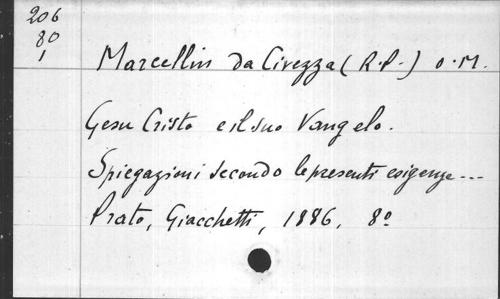 206
80
1
Marcellin da Civezza (R.P.) o.M.
Gesu Cristo e il suo Vangelo.
Spiegazioni secondo le presenti esigenze...
Prato, Giacchetti, 1886, 8º